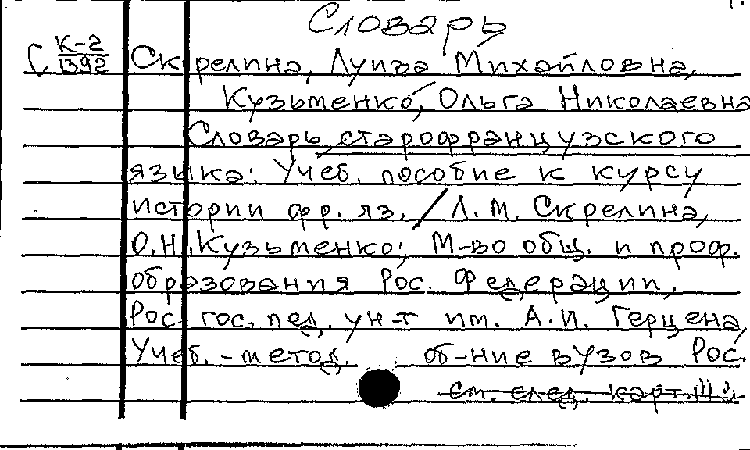 Словарь
С К-2
1392
Скрелина, Луиза Михайловна,
Кузьменко, Ольга Николаевна
Словарь старофранцузского
языка: Учеб. пособие к курсу
истории фр. яз. / Л.М. Скрелина,
О.Н. Кузьменко; М-во общ. и проф.
образования Рос. Федерации,
Рос. гос. пед. ун-т им. А.И. Герцена,
Учеб.-метод. об-ние вузов Рос.
см. след. карт.